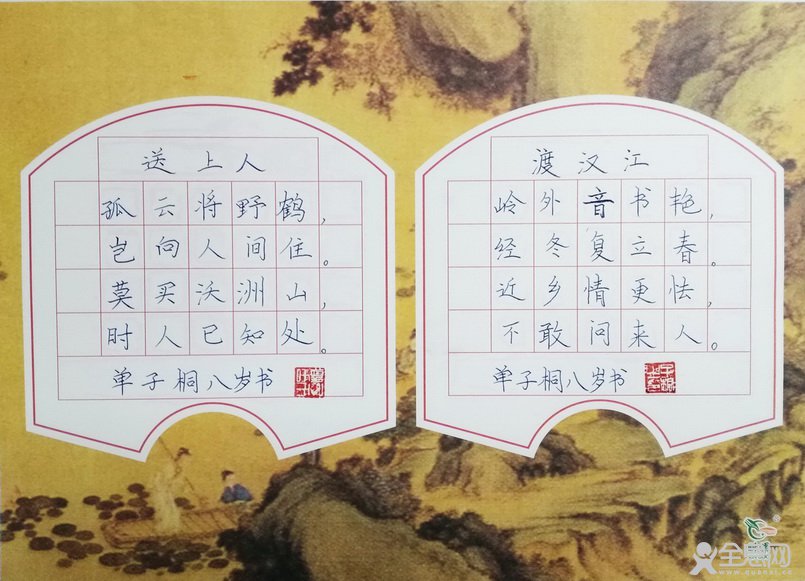 送上人
孤云将野鹤，
岂向人间住。
莫买沃洲山，
时人已知处。
单子桐八岁书
渡汉江
岭外音书艳，
经冬复立春。
近乡情更怯，
不敢问来人。
单子桐八岁书
全息网
www.quanxi.cc